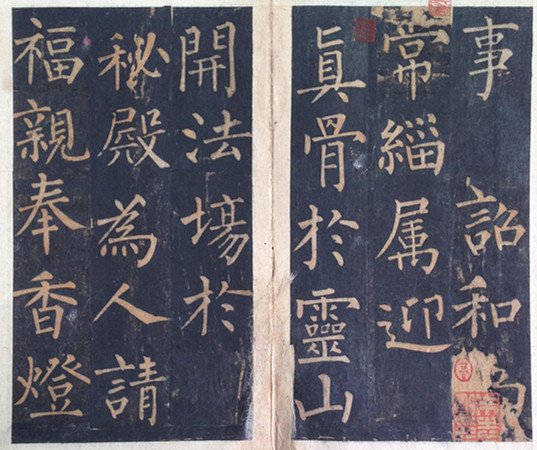 事　詔和尚
常緇属迎
眞骨於靈山
開法場於
秘殿為人請
福親奉香燈